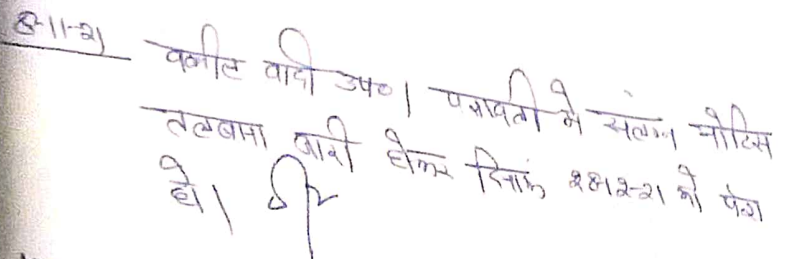 8-11-21 वकील वादी उप०। पत्रावली मे संलग्न नोटिस
तलबाना जारी होकर दिनांक 28-12-21 को पेश
हो।